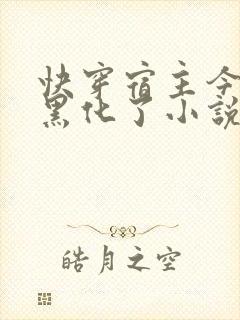 快穿宿主今
黑化了小説
皓月之空